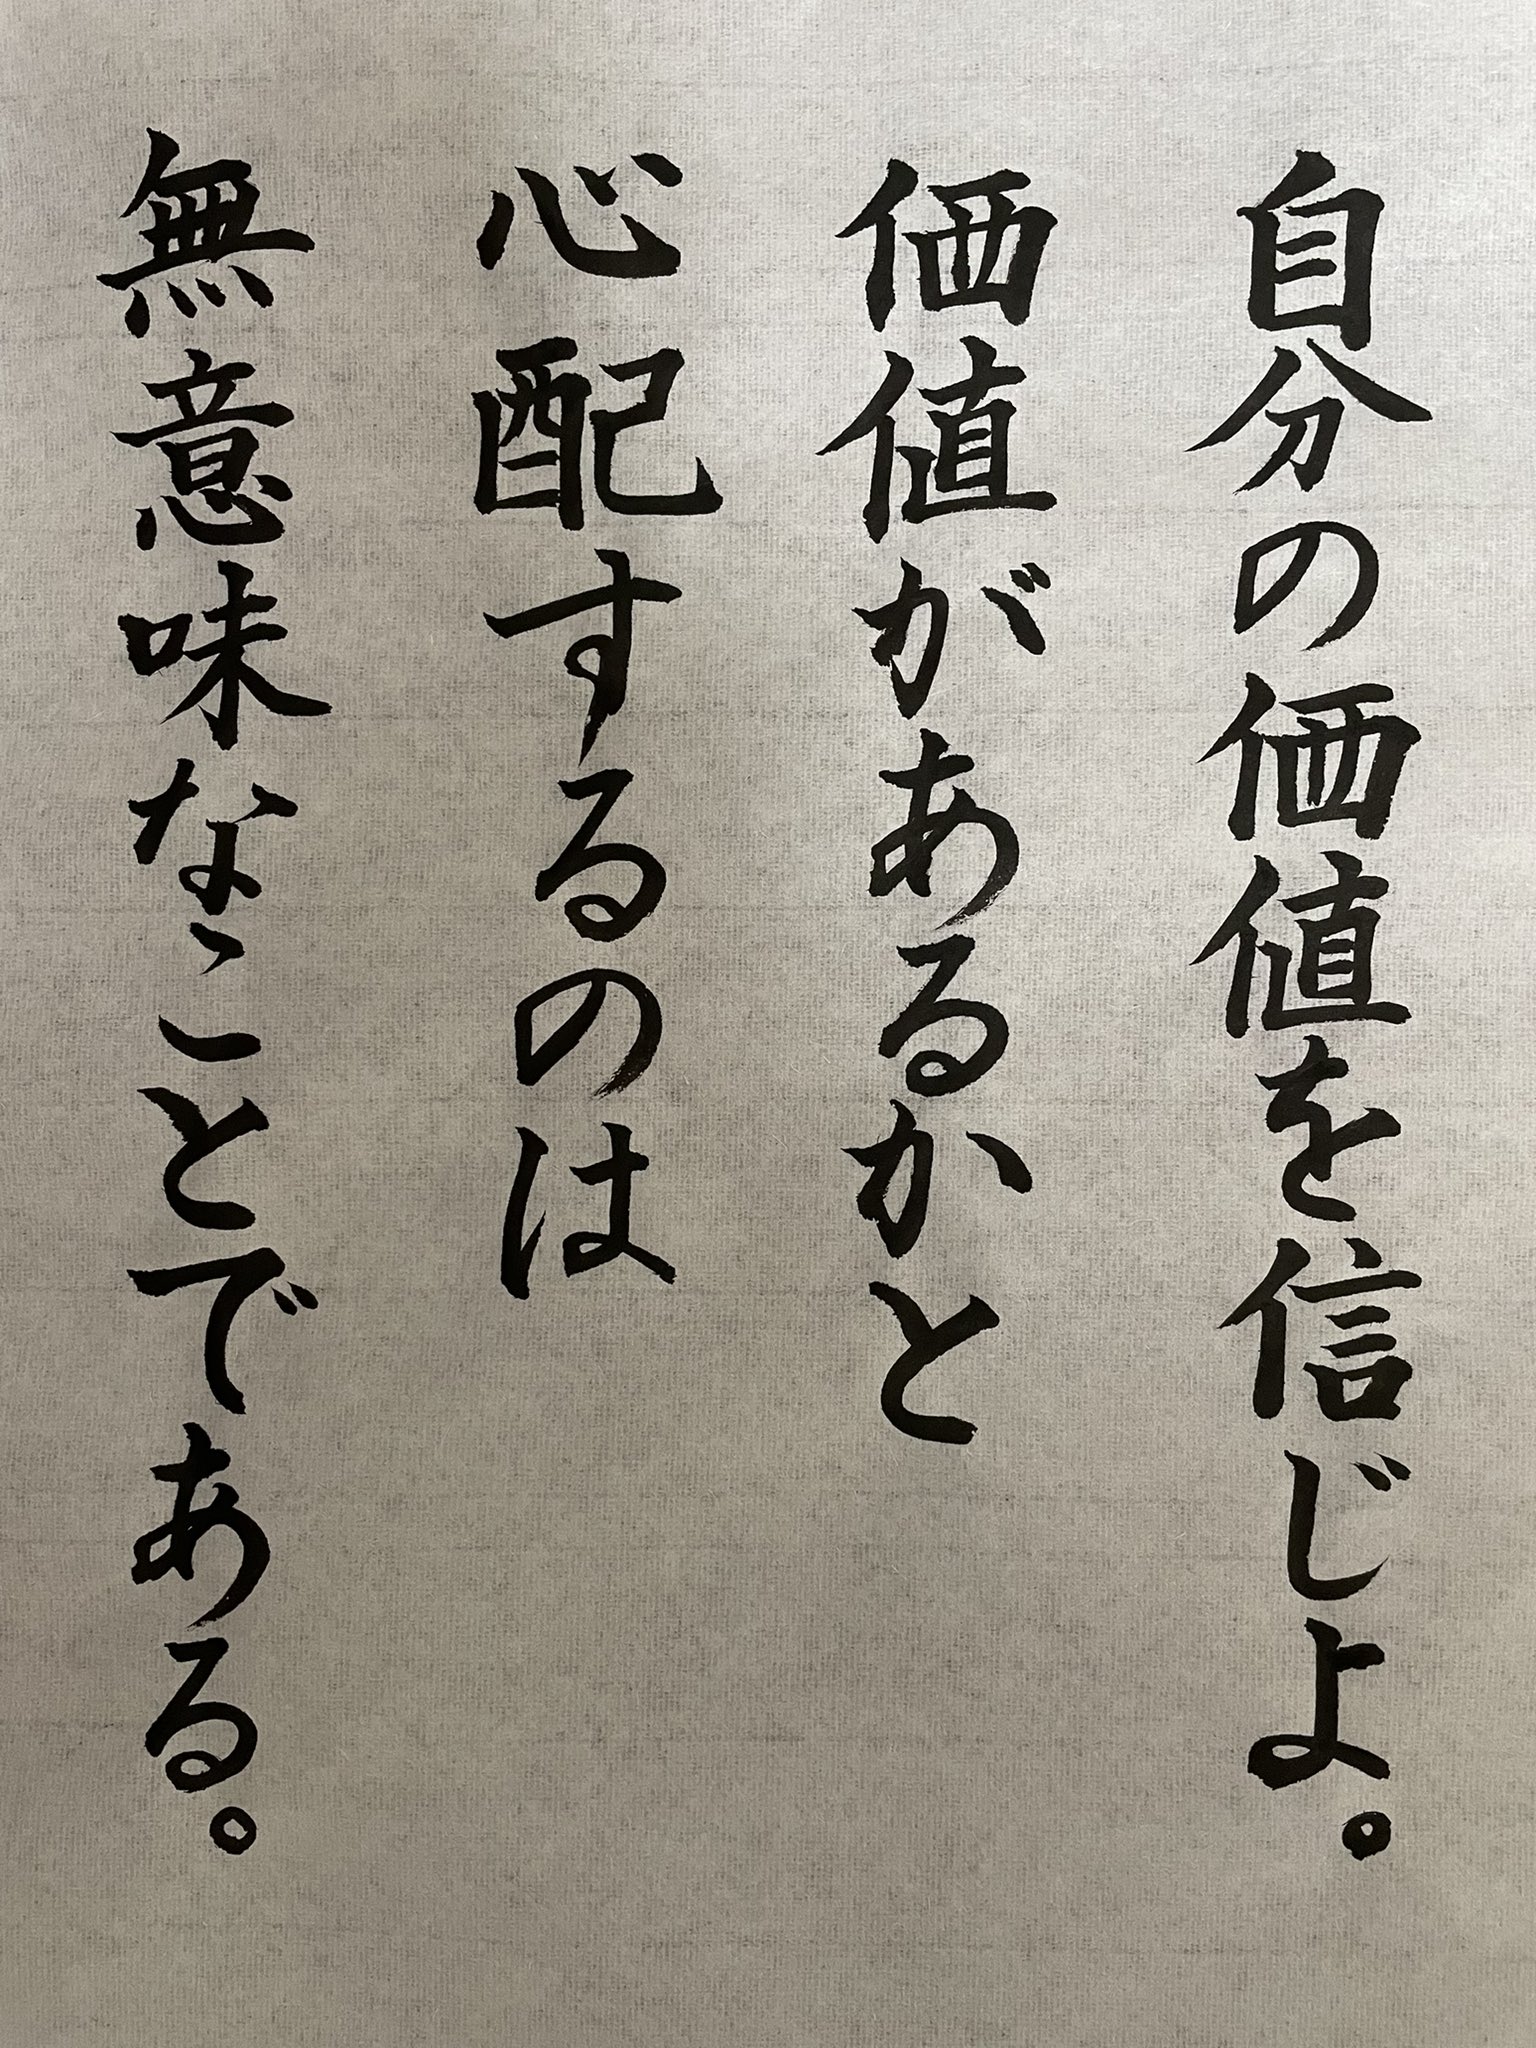 自分の価値を信じよ。
価値があるかと
心配するのは
無意味なことである。